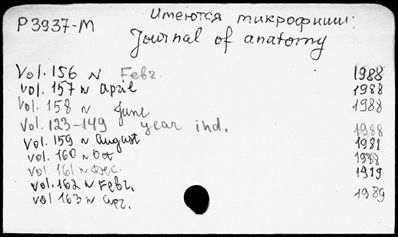 P3937-M Имеются микрофиши:
Journal of anatomy
Vol. 156 N Febr. 1988
vol. 157 N april 1988
Vol. 158 N June 1988
Vol. 123-149 year ind. 1988
vol. 159 N august 1988
vol. 160 N Oct 1988
vol 161 N Dec. 1989
vol. 162 N Febr.
vol 163 N apr. 1989